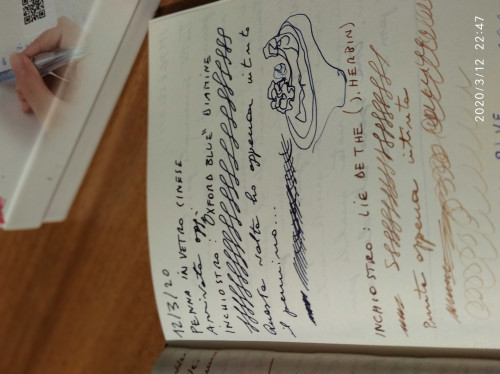 12/3/20
PENNA IN VETRO CINESE
Arrivata oggi.
INCHIOSTRO: "OXFORD BLUE" DIAMINE
Questa volta ho appena intinto
il pennino...
INCHIOSTRO: LIE DE THE (J. HERBIN)
Punta appena intinta
2020/3/12 22:47